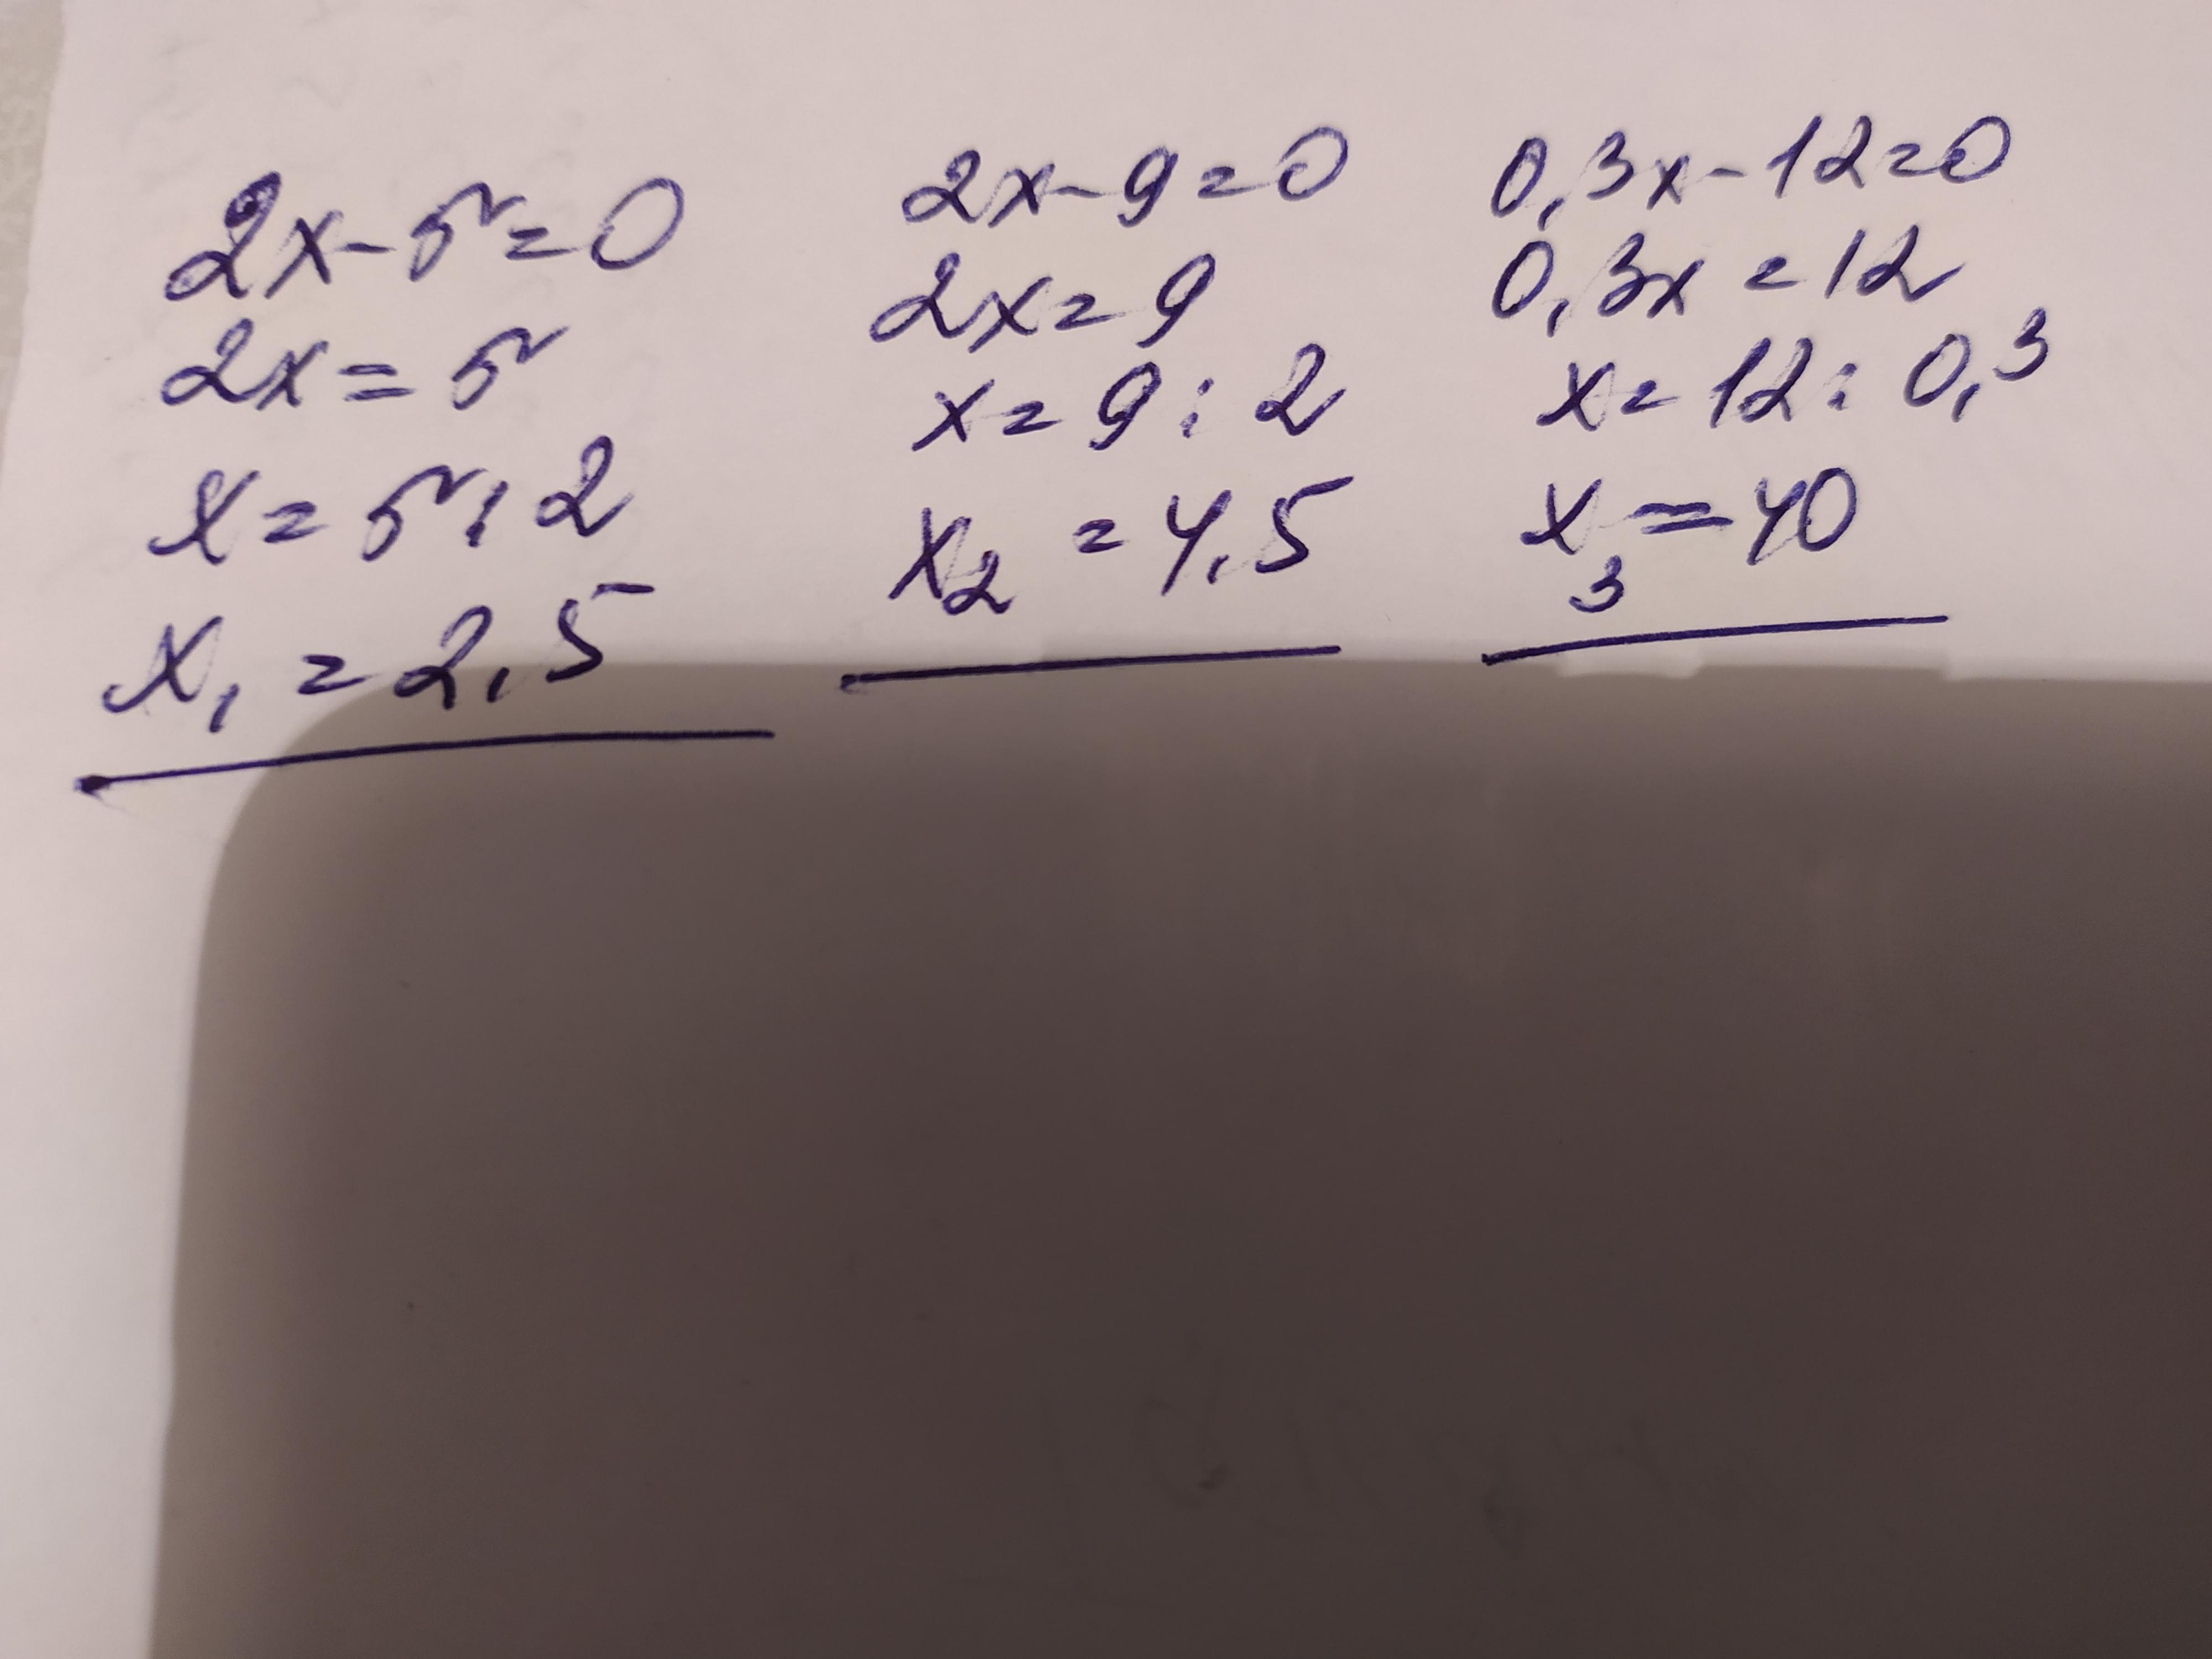 2x-5=0
2x=5
x=5:2
x₁=2,5
2x-9=0
2x=9
x=9:2
x₂=4,5
0,3x-12=0
0,3x=12
x=12:0,3
x₃=40